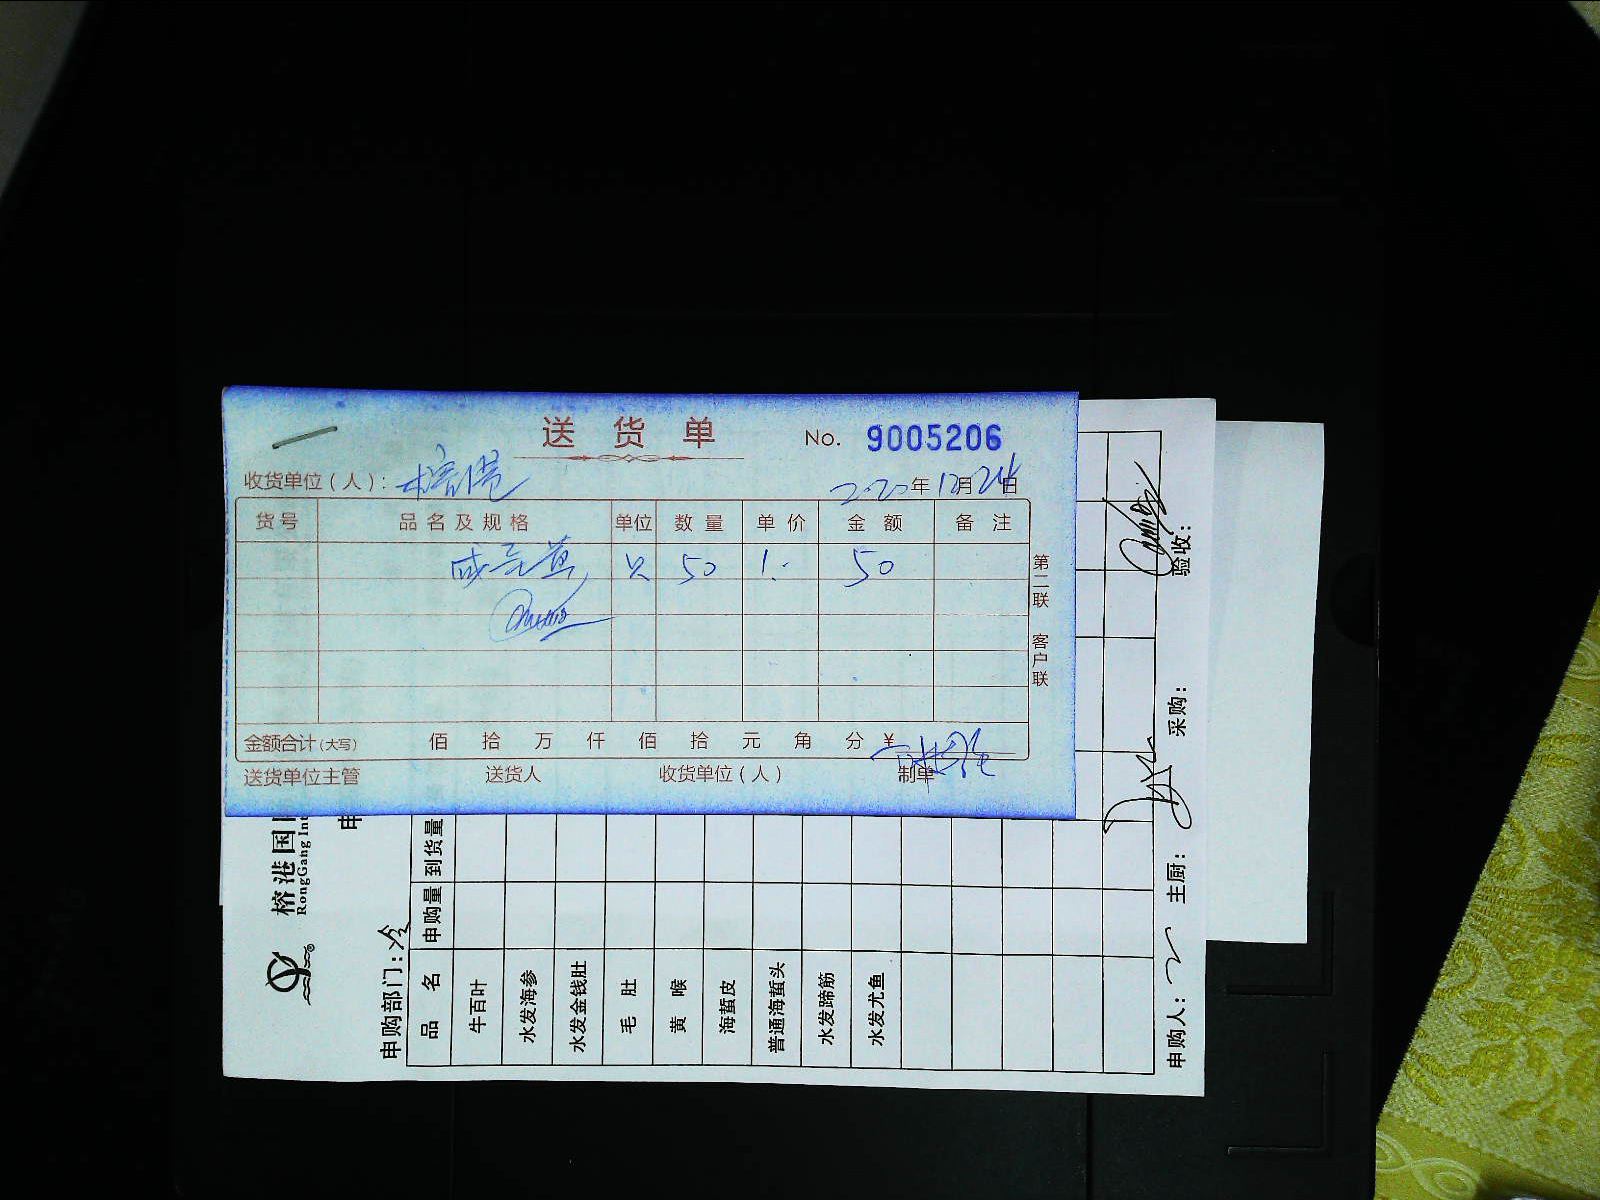 送货单 No. 9005206
收货单位(人): 榕港 2020年12月24日
货号 品名及规格 单位 数量 单价 金额 备注
咸蛋黄 只 50 1.- 50
第二联 客户联
金额合计(大写) 佰 拾 万 仟 佰 拾 元 角 分 ¥
送货单位主管 送货人 收货单位(人) 制单
榕港国
RongGang Int
申
申购部门:冷
品名 申购量 到货量
牛百叶
水发海参
水发金钱肚
毛肚
黄喉
海蜇皮
普通海蜇头
水发蹄筋
水发尤鱼
申购人: 主厨: 采购: 验收: